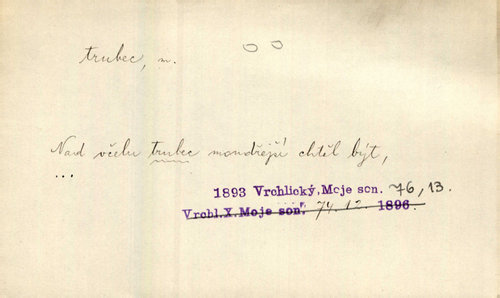 trubec, m.
Nad včelu trubec moudřejší chtěl být,
...
1893 Vrchlický, Moje son. 76, 13.
Vrchl. X. Moje son. 74. 12. 1896.